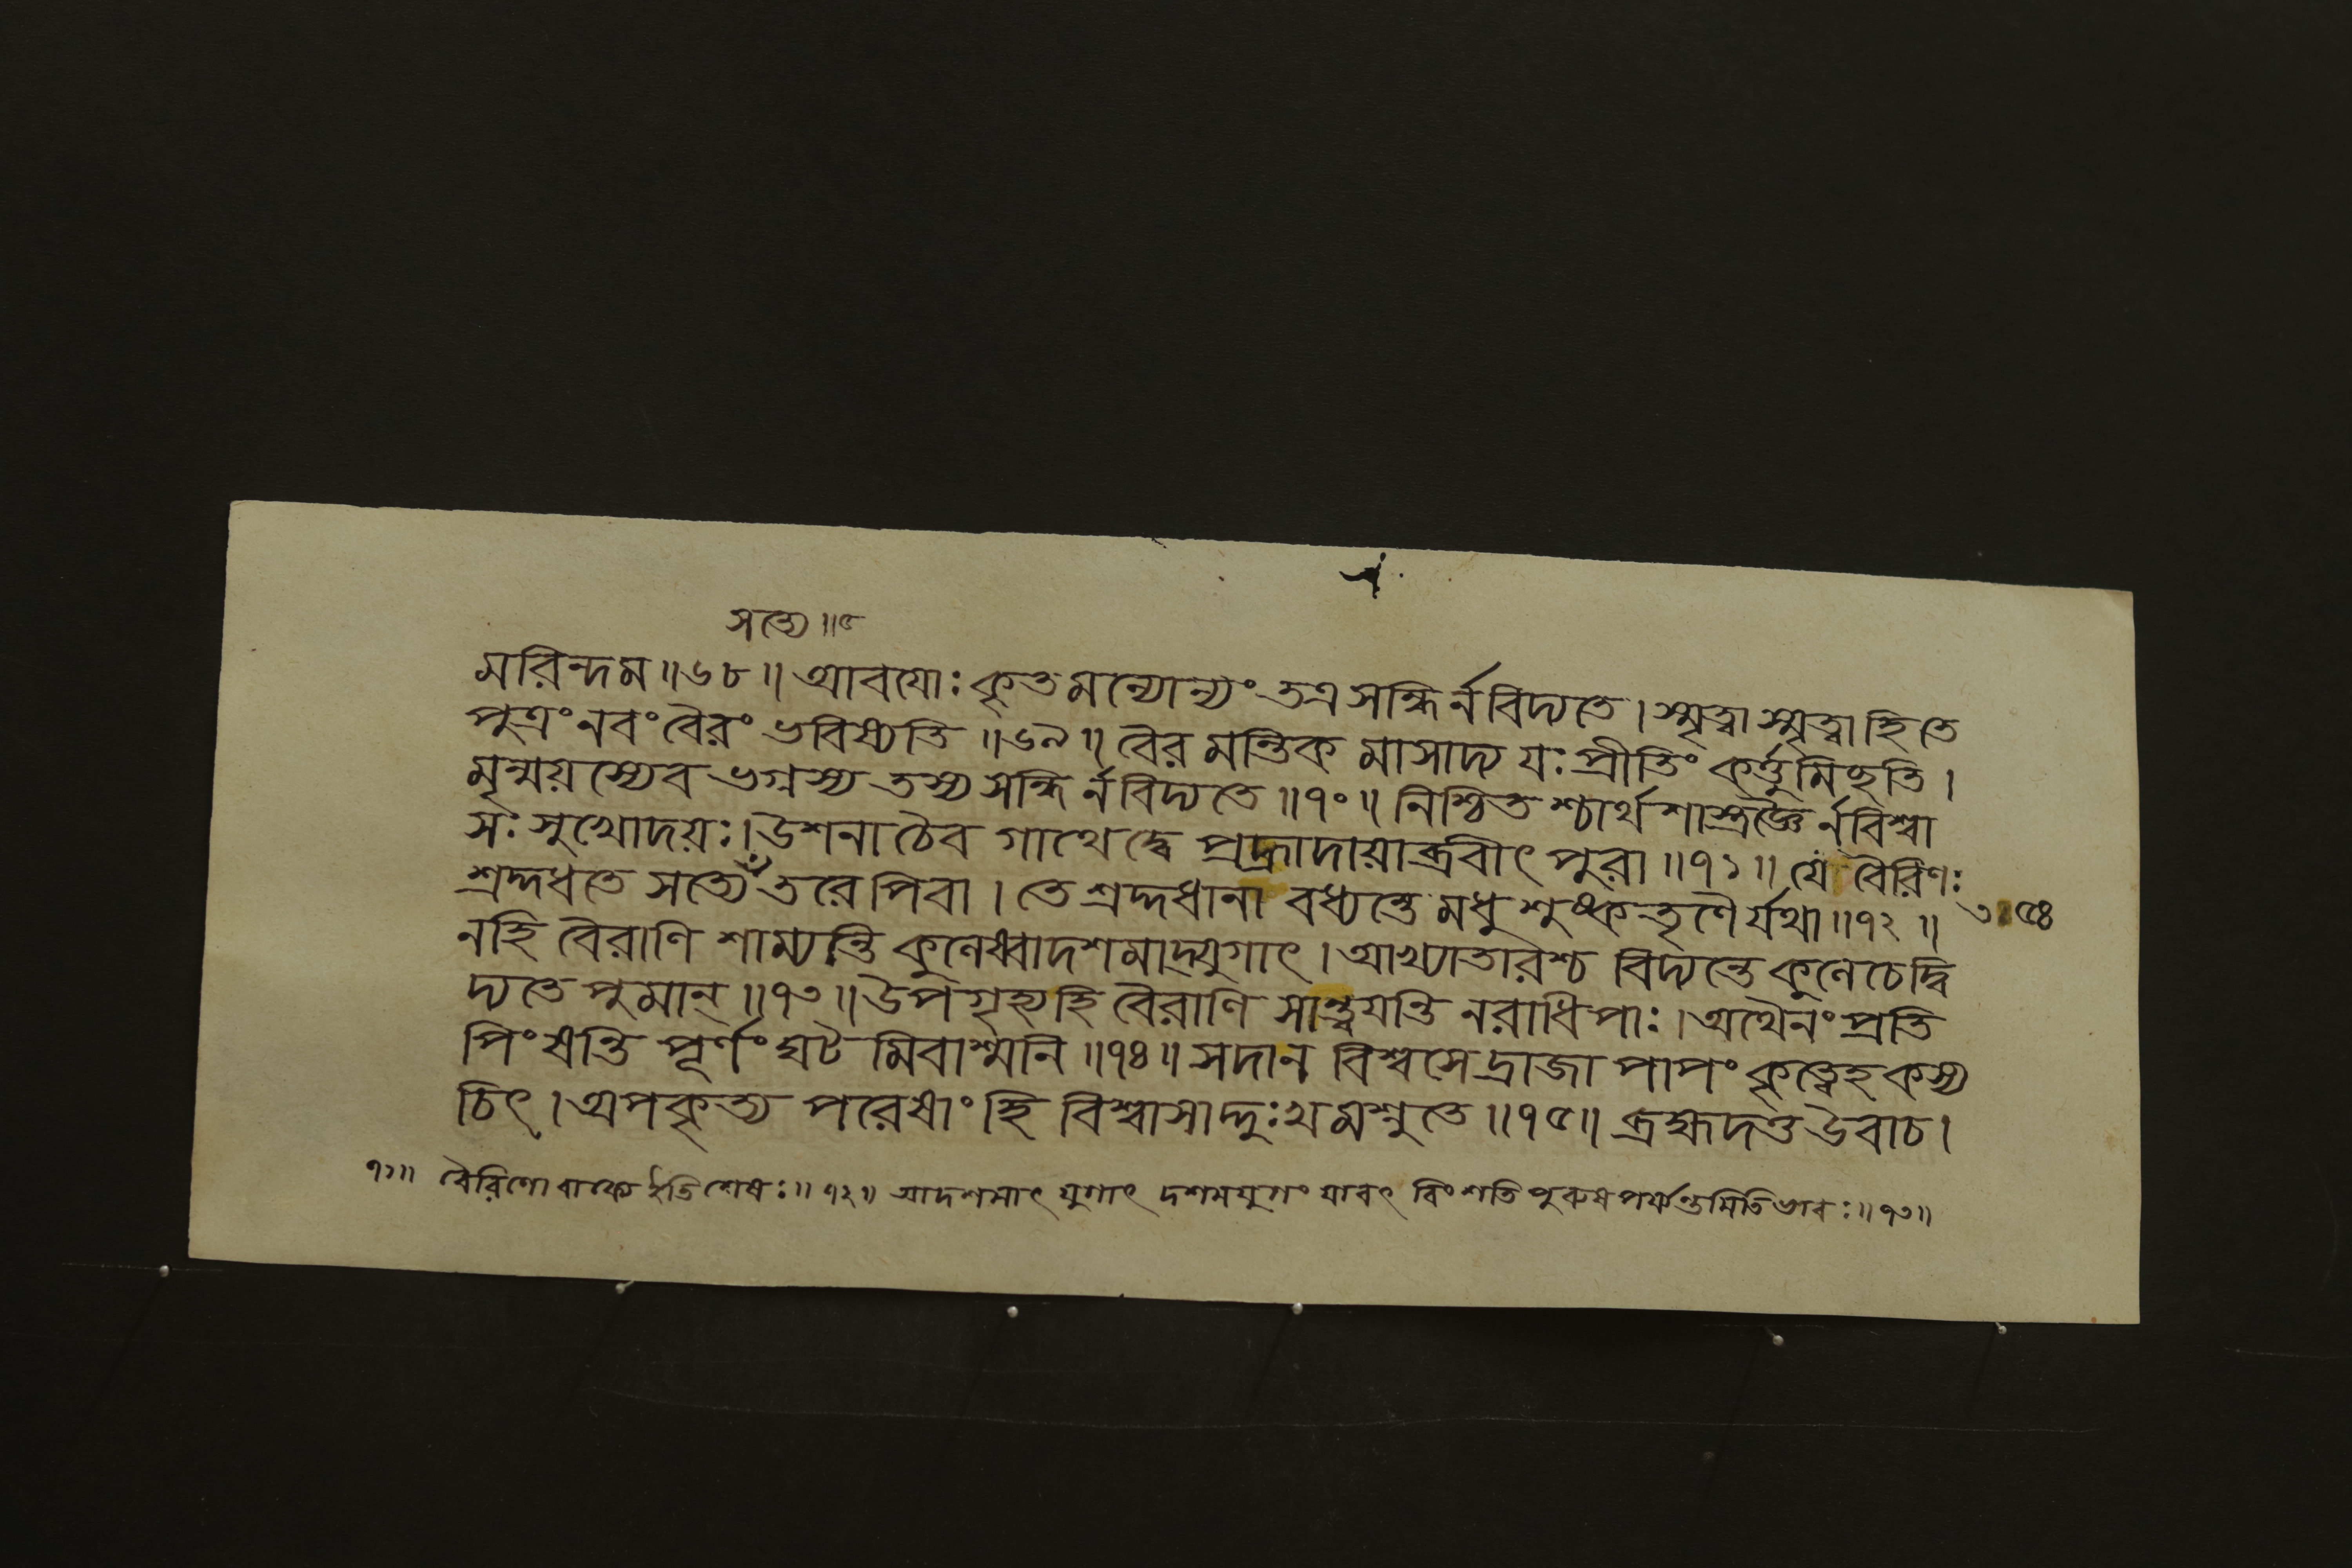 সত্যে॥৫
মরিন্দম॥৬৮॥আবযোঃকৃতমন্যোন্যংতত্রসন্ধির্নবিদ্যতে।স্মৃত্বাস্মৃত্বাহিতে
পুত্রংনবংবৈরংভবিষ্যতি॥৬৯॥বৈরমন্তিকমাসাদ্যযঃপ্রীতিংকর্ত্তুমিছতি।
মৃন্ময়স্যেবভগ্নস্যতস্যসন্ধির্নবিদ্যতে॥৭০॥নিশ্চিতশ্চার্থশাস্ত্রজ্ঞৈর্নবিশ্বা
সঃসুখোদয়ঃ।উশনাচৈবগাথেদ্বেপ্রহ্রাদায়াব্রবীৎপুরা॥৭১॥যেবৈরিণঃ
শ্রদ্দধতেসত্যেঁতরেপিবা।তেশ্রদ্দধানাবধ্যন্তেমধুশুষ্কতৃণৈর্যথা॥৭২॥
নহিবৈরাণিশাম্যন্তিকুলেষ্বাদশমাদ্যুগাৎ।আখ্যাতারশ্চবিদ্যন্তেকুলেচেদ্বি
দ্যতেপুমান্॥৭৩॥উপগৃহ্যহিবৈরাণিসান্ত্বযন্তিনরাধিপাঃ।অথৈনংপ্রতি
পিংষন্তিপূর্ণংঘটমিবাশ্মনি॥৭৪॥সদানবিশ্বসেদ্রাজাপাপংকৃত্বেহকস্য
চিৎ।অপকৃত্যপরেষাংহিবিশ্বাসাদ্দুঃখমশ্নুতে॥৭৫॥ব্রহ্মদত্তউবাচ।
৭১॥বৈরিণোবাক্যেইতিশেষঃ॥৭২॥আদশমাৎযুগাৎদশমযুগংযাবৎবিংশতিপুরুষপর্য্যন্তমিতিভাবঃ॥৭৩॥